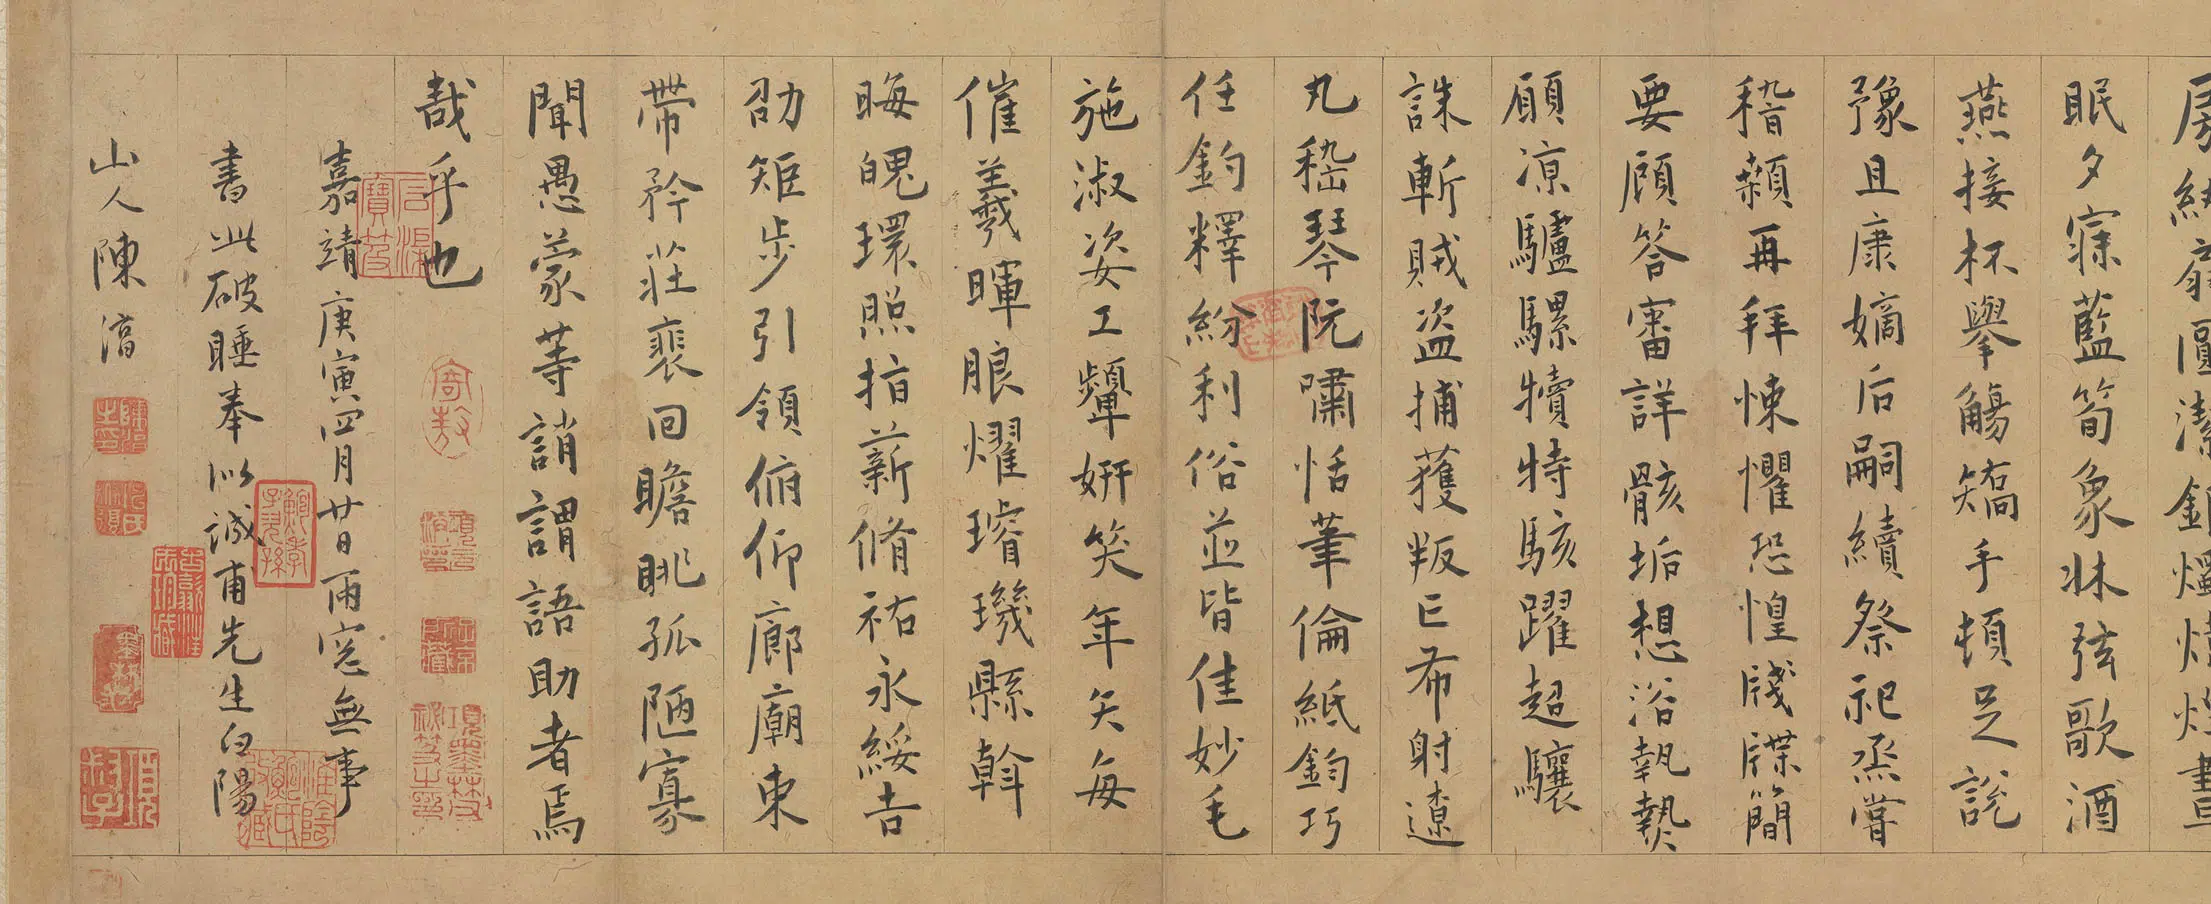 房紈扇圓潔銀燭煒煌晝
眠夕寐藍筍象牀弦歌酒
燕接杯舉觴矯手頓足說
豫且康嫡后嗣續祭祀烝嘗
稽顙再拜悚懼恐惶牋牒簡
要顧答審詳骸垢想浴執熱
願涼驢騾犢特駭躍超驤
誅斬賊盜捕獲叛亡布射遼
丸嵇琴阮嘯恬筆倫紙鈞巧
任釣釋紛利俗並皆佳妙毛
施淑姿工顰妍笑年矢每
催羲暉朗耀璿璣縣斡
晦魄環照指薪脩祐永綏吉
劭矩步引領俯仰廊廟束
帶矜莊裴回瞻眺孤陋寡
聞愚蒙等誚謂語助者焉
哉乎也
嘉靖庚寅四月廿日雨窓無事
書此破睡奉似誠甫先生白陽
山人陳淳